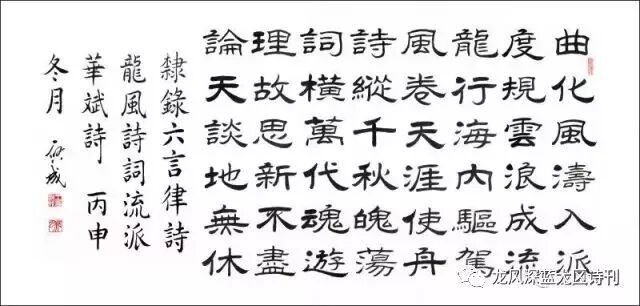 曲化風濤入派
度規雲浪成流
龍行海内驅駕
風卷天涯使舟
詩縱千秋魄蕩
詞橫萬代魂遊
理故思新不盡
論天談地無休
隸錄六言律詩
龍風詩詞流派
華斌詩 丙申
冬月
龙风深蓝大区诗刊